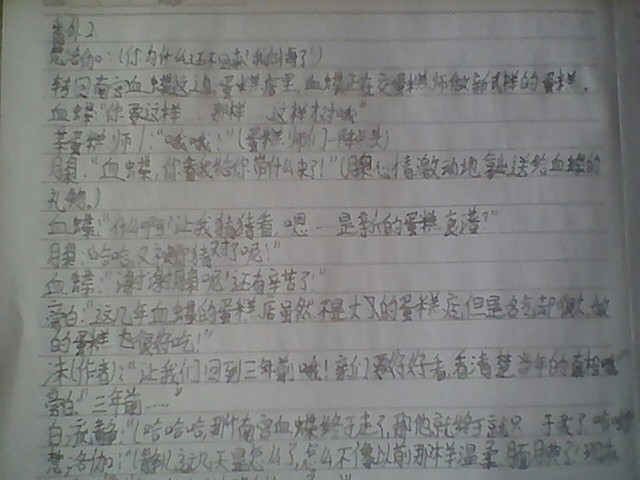 番外2
洛伽:(你为什么还不回来?我们悔了!)
转回南宫血蝶这边,蛋糕店里,血蝶正在交蛋糕师做新式样的蛋糕。
血蝶:"你要这样 那样 这样 哦"
某蛋糕师1:"哦哦!"(蛋糕师们一阵点头)
月:"血蝶,你看我给你带什么来了!"(月心情激动地拿出送给血蝶的
礼物。)
血蝶:"什么啊?让我猜猜看,嗯……是新的蛋糕 ?"
月:"哈哈,又被你猜对了呢!"
血蝶:"谢谢月呢!还有辛苦了!"
旁白:"这几年血蝶的蛋糕店虽然不是大的蛋糕店,但是名气却很大,做
的蛋糕也很好吃!"
沫(作者):"让我们回到三年前哦!亲们要好好看,看清楚当年的真相哦"
旁白:"三年前……"
白静:"(哈哈哈,那个南宫血蝶终于走了,那他就终于就只 于我了,哈哈
楚洛伽:"(静儿这几天是怎么了,怎么不像以前那样温柔,腼腆了!现在